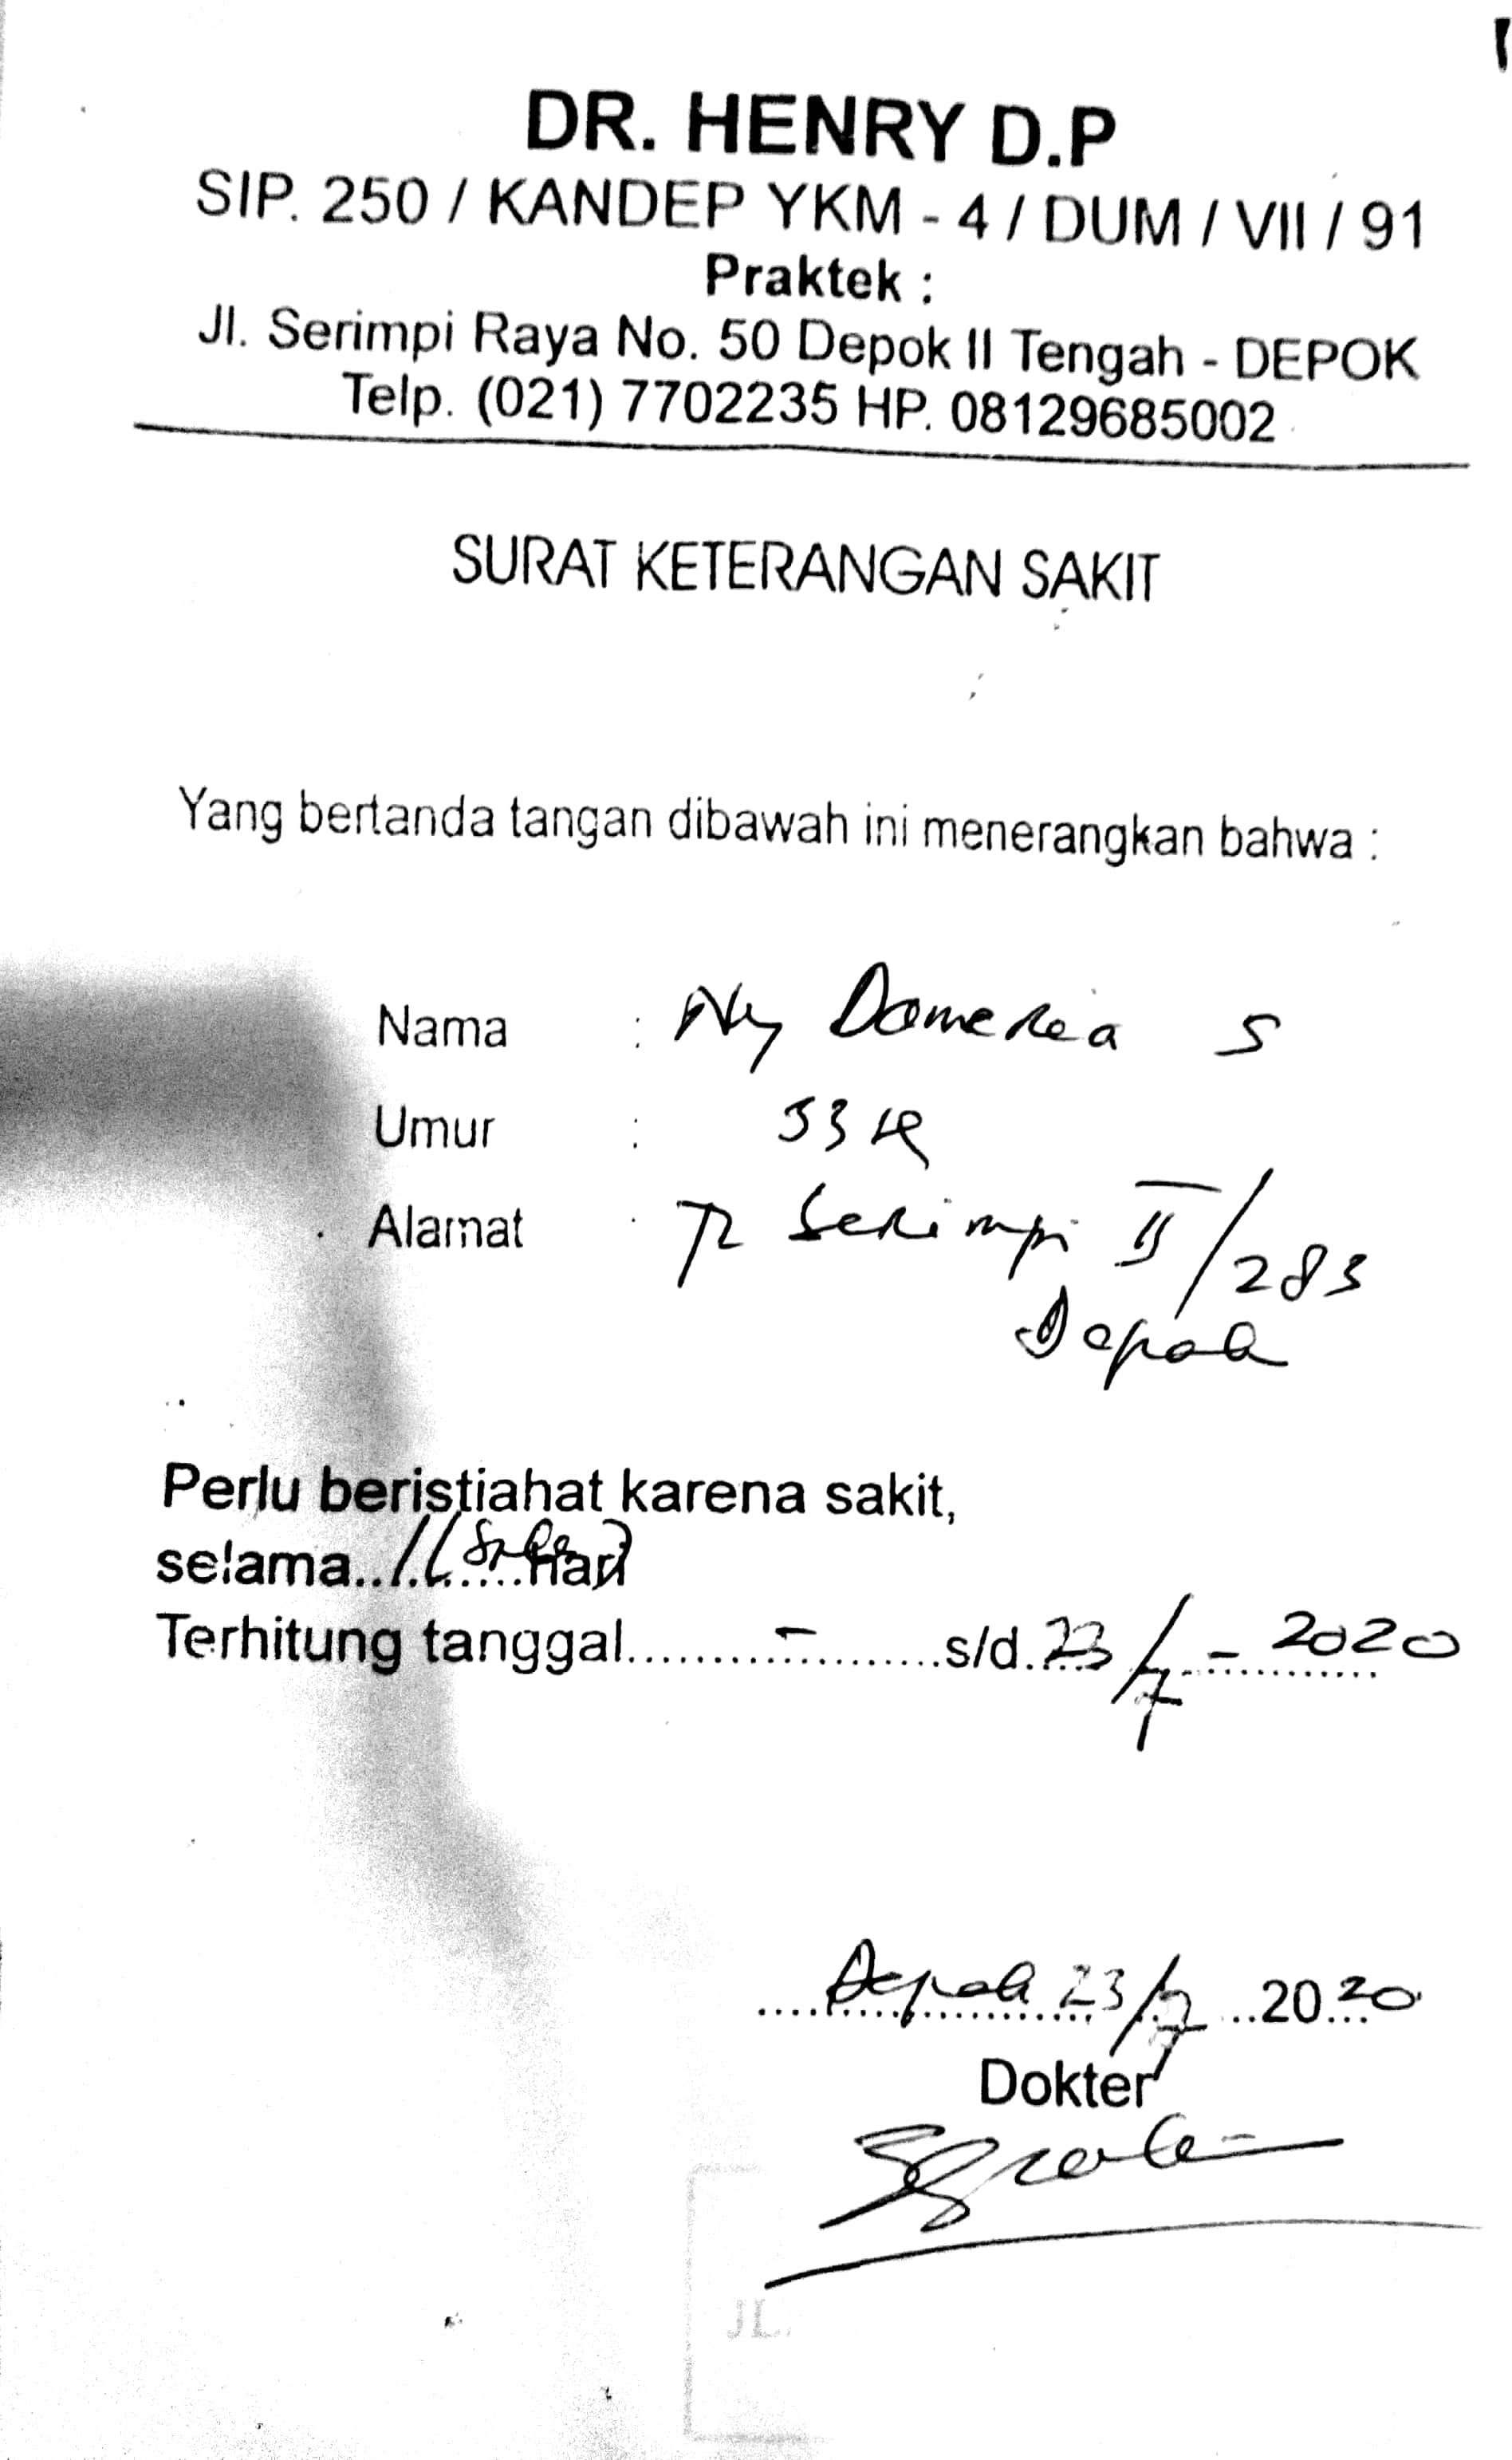 DR. HENRY D.P
SIP. 250 / KANDEP YKM - 4 / DUM / VII / 91
Praktek :
Jl. Serimpi Raya No. 50 Depok II Tengah - DEPOK
Telp. (021) 7702235 HP. 08129685002
SURAT KETERANGAN SAKIT
Yang bertanda tangan dibawah ini menerangkan bahwa :
Nama : Ny Domeria S
Umur : 53
Alamat : Jl Serimpi II/283
Depok
Perlu beristiahat karena sakit,
selama..1.(.....Hari
Terhitung tanggal.........-.........s/d. 23/7 - 2020
Depok 23/7 2020
Dokter
JL.